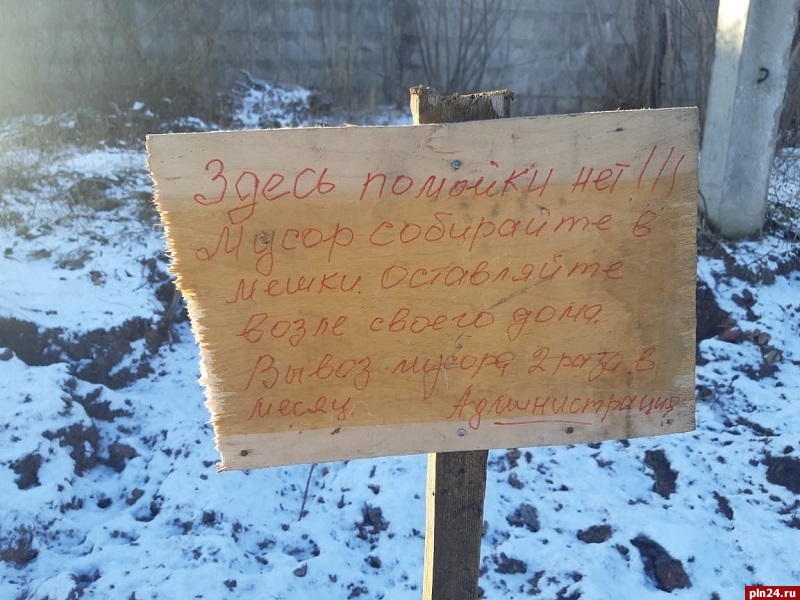 Здесь помойки нет!!!
Мусор собирайте в
мешки. Оставляйте
возле своего дома.
Вывоз мусора 2 раза в
месяц. Администрация
pln24.ru